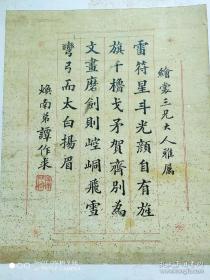 繪蒙三兄大人雅屬
雷符星斗光顏自有旌
旗千櫓戈矛賀齊別為
文畫磨劍則崆峒飛雪
彎弓而太白揚眉
煥南弟譚作來